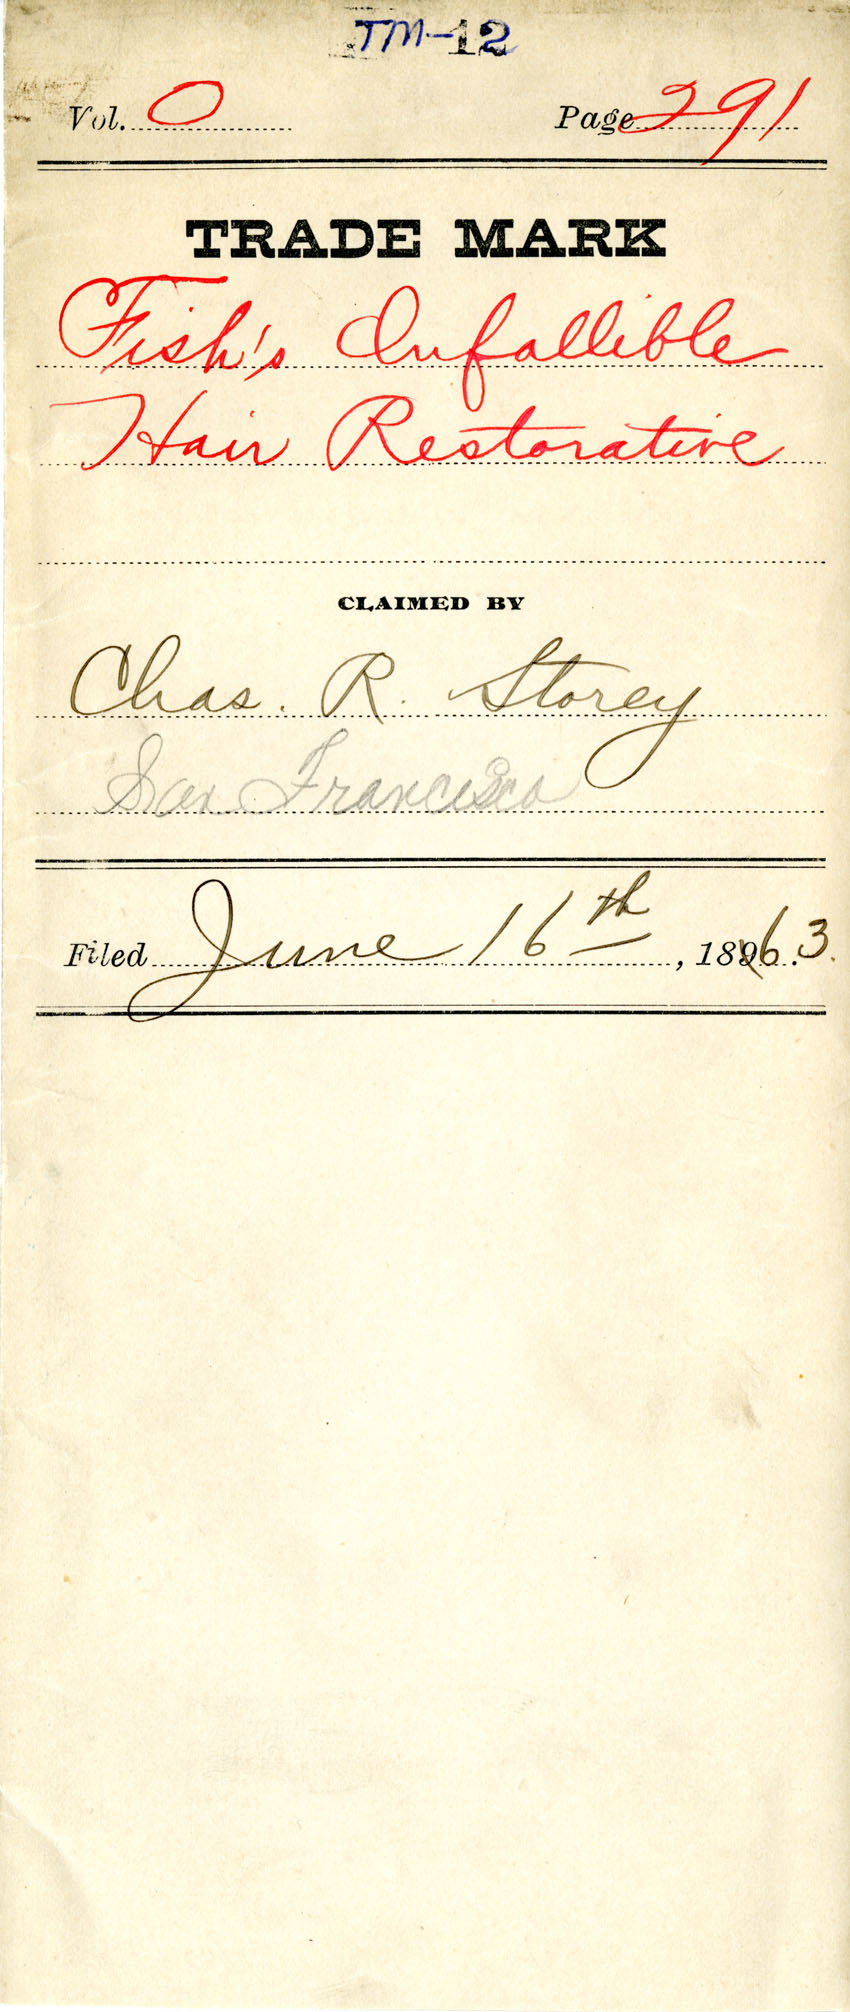 TM-12
Vol. 0 Page 291
TRADE MARK
Fish's Infallible
Hair Restorative
CLAIMED BY
Chas. R. Storey
San Francisco
Filed June 16th, 1863.